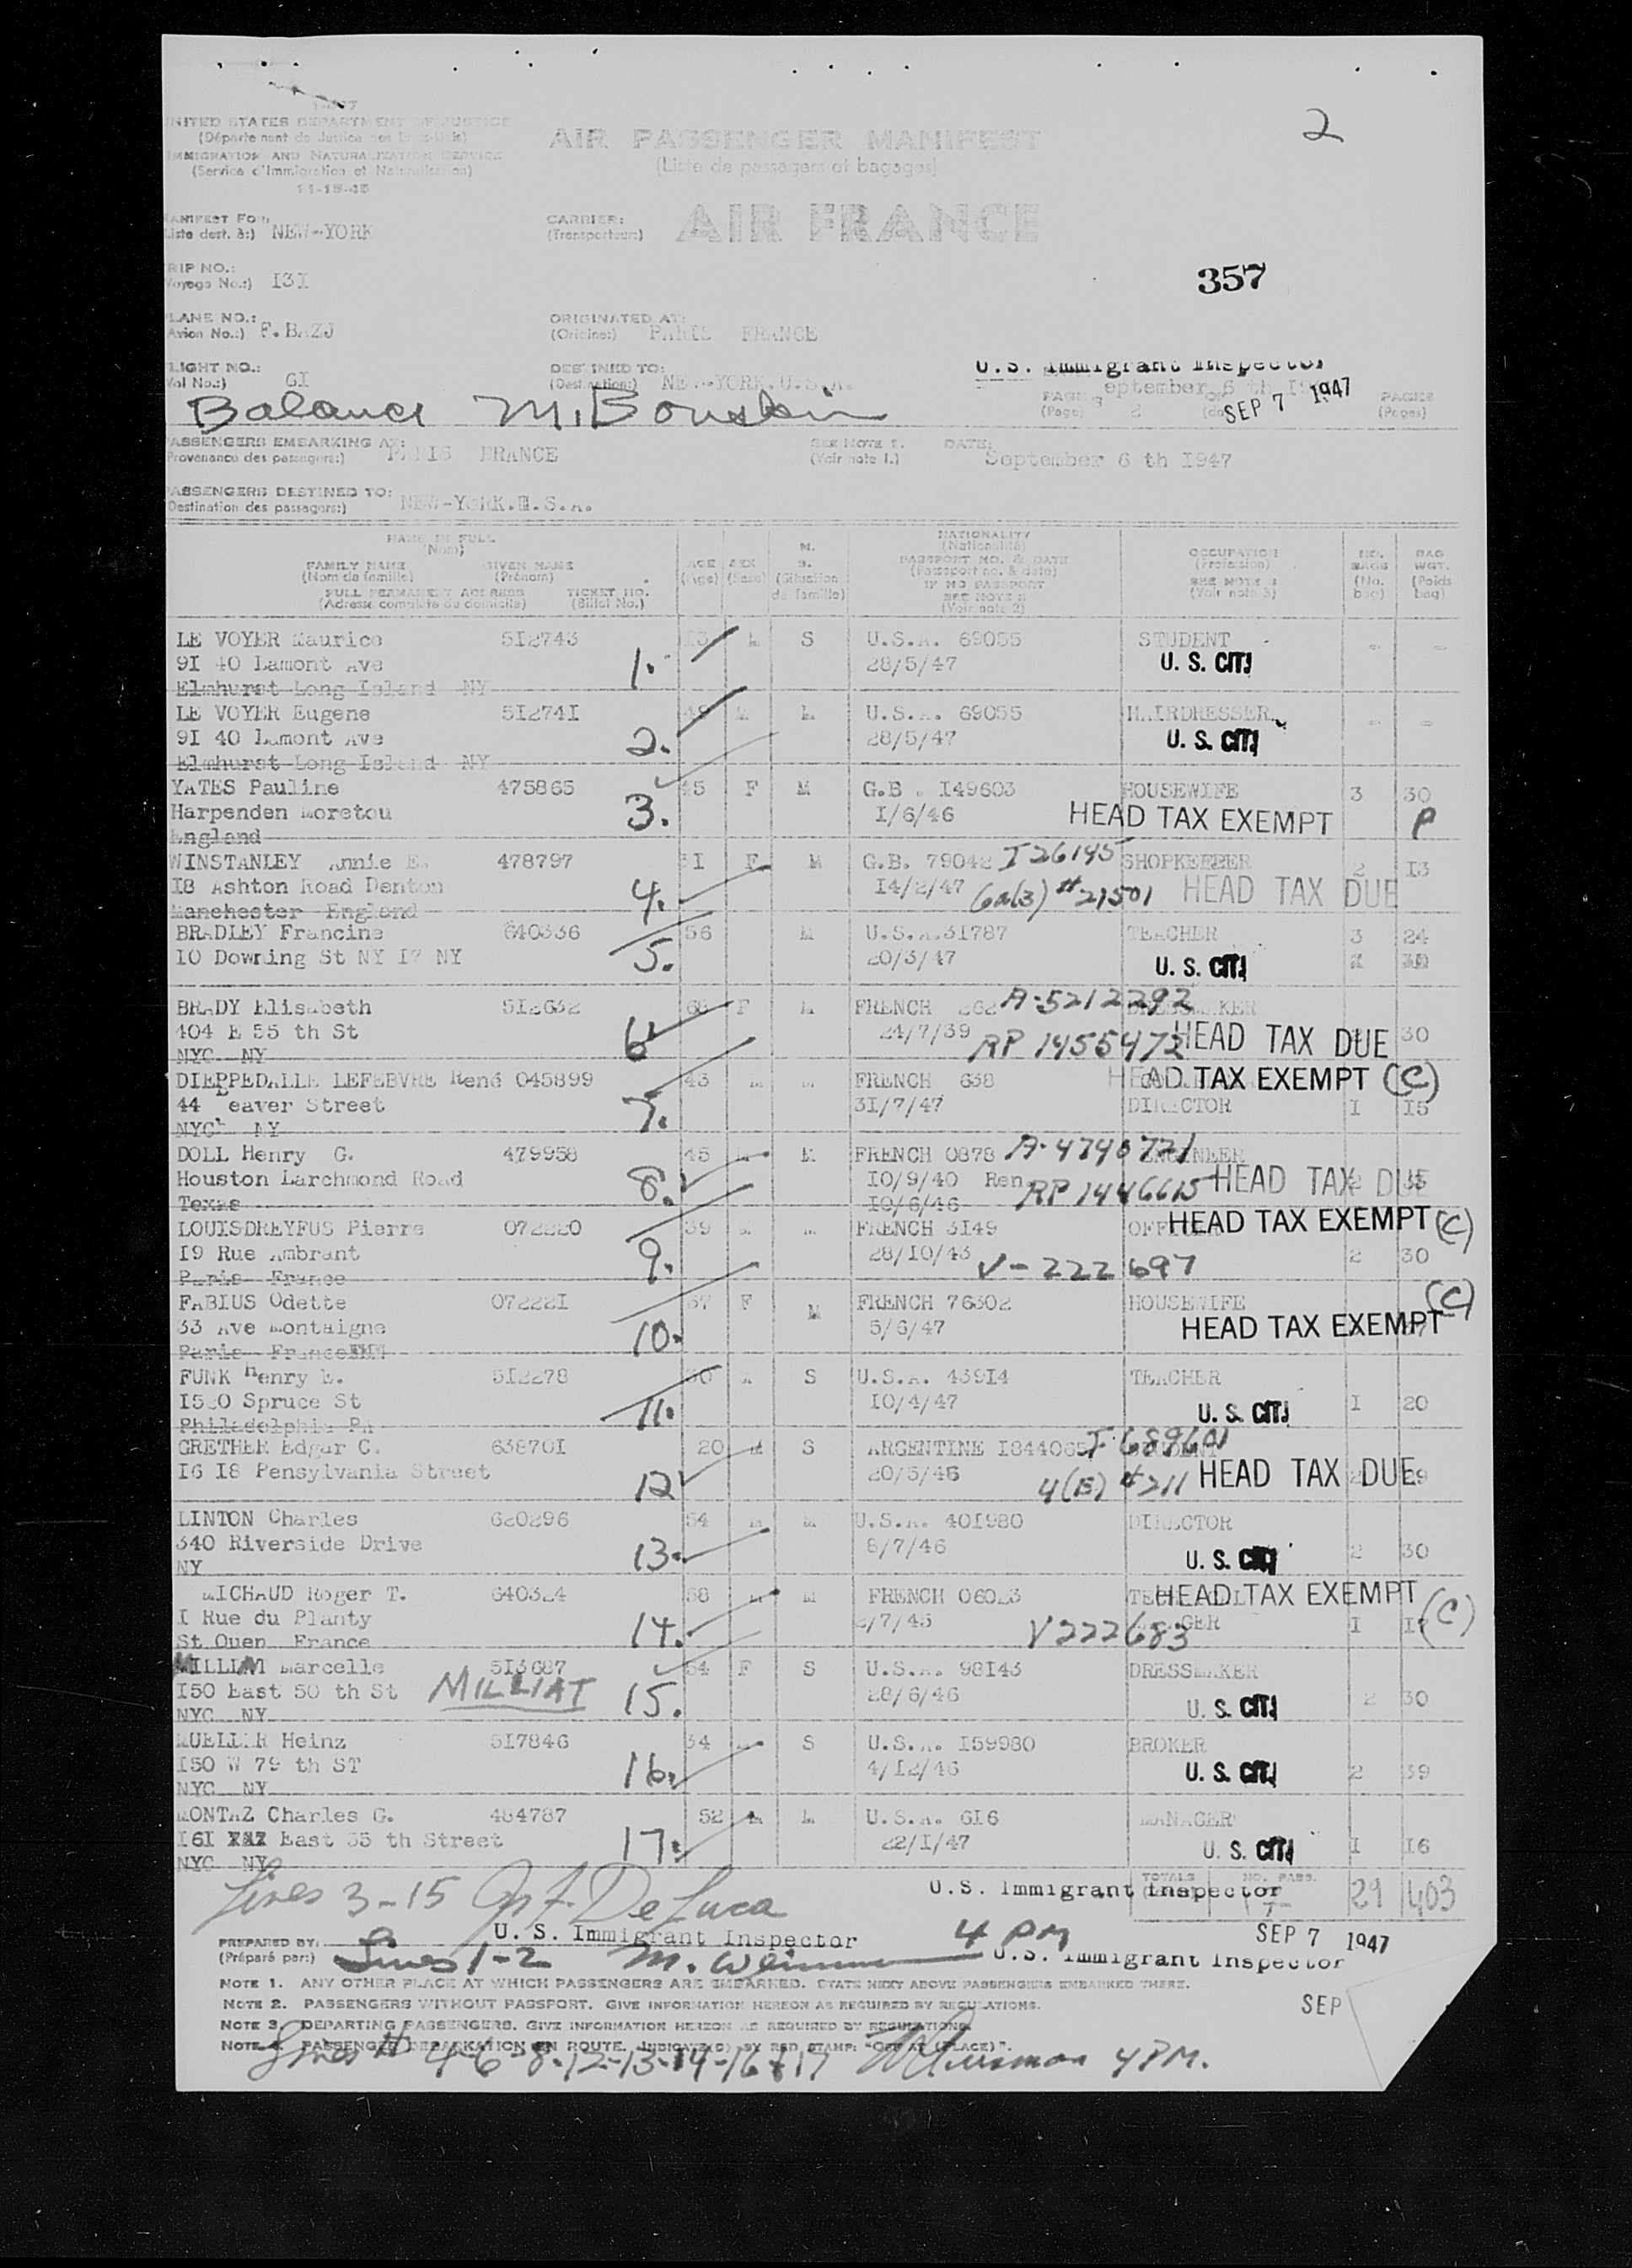 2
UNITED STATES DEPARTMENT OF JUSTICE
(Département de Justice des Etats-Unis)
IMMIGRATION AND NATURALIZATION SERVICE
(Service d'Immigration et Naturalisation)
11-15-45
AIR PASSENGER MANIFEST
(Liste de passagers et bagages)
MANIFEST FOR:
(Liste dest. à:) NEW-YORK
CARRIER:
(Transporteur:) AIR FRANCE
TRIP NO.:
(Voyage No.:) I3I
357
PLANE NO.:
(Avion No.:) F.BAZJ
ORIGINATED AT:
(Origine:) PARIS FRANCE
FLIGHT NO.:
(Vol No.:) GI
DESTINED TO:
(Destination:) NEW-YORK.U.S.A.
U.S. Immigrant Inspector
eptember 6 th I9
PAGE
(Page) 2
SEP 7 1947
PAGES
(Pages)
Balance
PASSENGERS EMBARKING AT:
(Provenance des passagers:) PARIS FRANCE
SEE NOTE 1.
(Voir note 1.)
DATE:
September 6 th I947
PASSENGERS DESTINED TO:
(Destination des passagers:) NEW-YORK.U.S.A.
NAME IN FULL
(Nom)
FAMILY NAME GIVEN NAME
(Nom de famille) (Prénom)
FULL PERMANENT ADDRESS TICKET NO.
(Adresse complète du domicile) (Billet No.)
AGE
(Age)
SEX
(Sexe)
M.
S.
(Situation de famille)
NATIONALITY
(Nationalité)
PASSPORT NO. & DATE
(Passeport no. & date)
IF NO PASSPORT
SEE NOTE 2
(Voir note 2)
OCCUPATION
(Profession)
SEE NOTE 3
(Voir note 3)
NO. BAGS
(No. bag)
BAG WGT.
(Poids bag)
LE VOYER Maurice 5I2743 1. I3 M S U.S.A. 69055 STUDENT - -
9I 40 Lamont Ave 28/5/47 U. S. CIT.
Elmhurst Long Island NY
LE VOYER Eugene 5I274I 2. 49 M M U.S.A. 69055 HAIRDRESSER - -
9I 40 Lamont Ave 28/5/47 U. S. CIT.
Elmhurst Long Island NY
YATES Pauline 475865 3. 45 F M G.B . I49603 HOUSEWIFE 3 30
Harpenden Moretou I/6/46 HEAD TAX EXEMPT P
England
WINSTANLEY Annie E. 478797 4. 5I F M G.B. 79042 I26145 SHOPKEEPER 2 I3
I8 Ashton Road Denton I4/2/47 6a(3) #21501 HEAD TAX DUE
Manchester England
BRADLEY Francine 640336 5. 56 M U.S.A.3I787 TEACHER 3 24
IO Downing St NY I7 NY 20/3/47 U. S. CIT.
BRADY Elisabeth 5I2632 6 66 F M FRENCH 262 A-5212292 DRESSMAKER
404 E 55 th St 24/7/39 RP 1455472 HEAD TAX DUE 30
NYC NY
DIEPPEDALLE LEFEBVRE René 045899 7. 43 M M FRENCH 638 HEAD TAX EXEMPT (C)
44 Beaver Street 3I/7/47 DIRECTOR I I5
NYC NY
DOLL Henry G. 479958 8. 45 M M FRENCH 0878 A-4740721 ENGINEER
Houston Larchmond Road IO/9/40 Ren RP 1446615 HEAD TAX DUE 2
Texas IO/6/46
LOUISDREYFUS Pierre 072220 9. 39 M M FRENCH 3I49 HEAD TAX EXEMPT (C)
I9 Rue Ambrant 28/IO/43 V-222697 2 30
Paris France
FABIUS Odette 07222I 10. 37 F M FRENCH 76302 HOUSEWIFE (C)
33 Ave Montaigne 5/6/47 HEAD TAX EXEMPT
Paris France
FUNK Henry E. 5I2278 11. 30 M S U.S.A. 439I4 TEACHER
I520 Spruce St IO/4/47 U. S. CIT. I 20
Philadelphia PA
GRETHER Edgar C. 63870I 12 20 M S ARGENTINE I844065 I-689601 STUDENT
I6 I8 Pensylvania Street 20/5/46 4(E) #211 HEAD TAX DUE 29
LINTON Charles 620296 13. 54 M M U.S.A. 40I980 DIRECTOR
340 Riverside Drive 8/7/46 U. S. CIT. 2 30
NY
MICHAUD Roger T. 640324 14. 58 M M FRENCH 06023 HEAD TAX EXEMPT (C)
I Rue du Planty 2/7/45 V222683 I I7
St Ouen France
MILLIAT Marcelle 5I3687 15. 54 F S U.S.A. 98I43 DRESSMAKER
I50 East 50 th St MILLIAT 28/6/46 U. S. CIT. 2 30
NYC NY
MUELLER Heinz 5I7846 16. 34 M S U.S.A. I59980 BROKER
I50 W 79 th ST 4/I2/46 U. S. CIT. 2 39
NYC NY
MONTAZ Charles G. 484787 17. 52 M M U.S.A. 6I6 MANAGER
I6I East 35 th Street 22/I/47 U. S. CIT. I I6
NYC NY
Lines 3-15 De Luca
U.S. Immigrant Inspector
TOTALS NO. PASS. 29 403
U. S. Immigrant Inspector
4 PM
SEP 7 1947
PREPARED BY:
(Préparé par:) Lines 1-2
U.S. Immigrant Inspector
NOTE 1. ANY OTHER PLACE AT WHICH PASSENGERS ARE EMBARKED. STATE NEXT ABOVE PASSENGERS EMBARKED THERE.
NOTE 2. PASSENGERS WITHOUT PASSPORT. GIVE INFORMATION HEREON AS REQUIRED BY REGULATIONS.
SEP
NOTE 3. DEPARTING PASSENGERS. GIVE INFORMATION HEREON AS REQUIRED BY REGULATIONS.
NOTE 4. PASSENGER DEBARKATION EN ROUTE. INDICATE(D) BY RED STAMP: "OFF AT (PLACE)".
Lines # 4-6-8-12-13-14-16 & 17 4 PM.